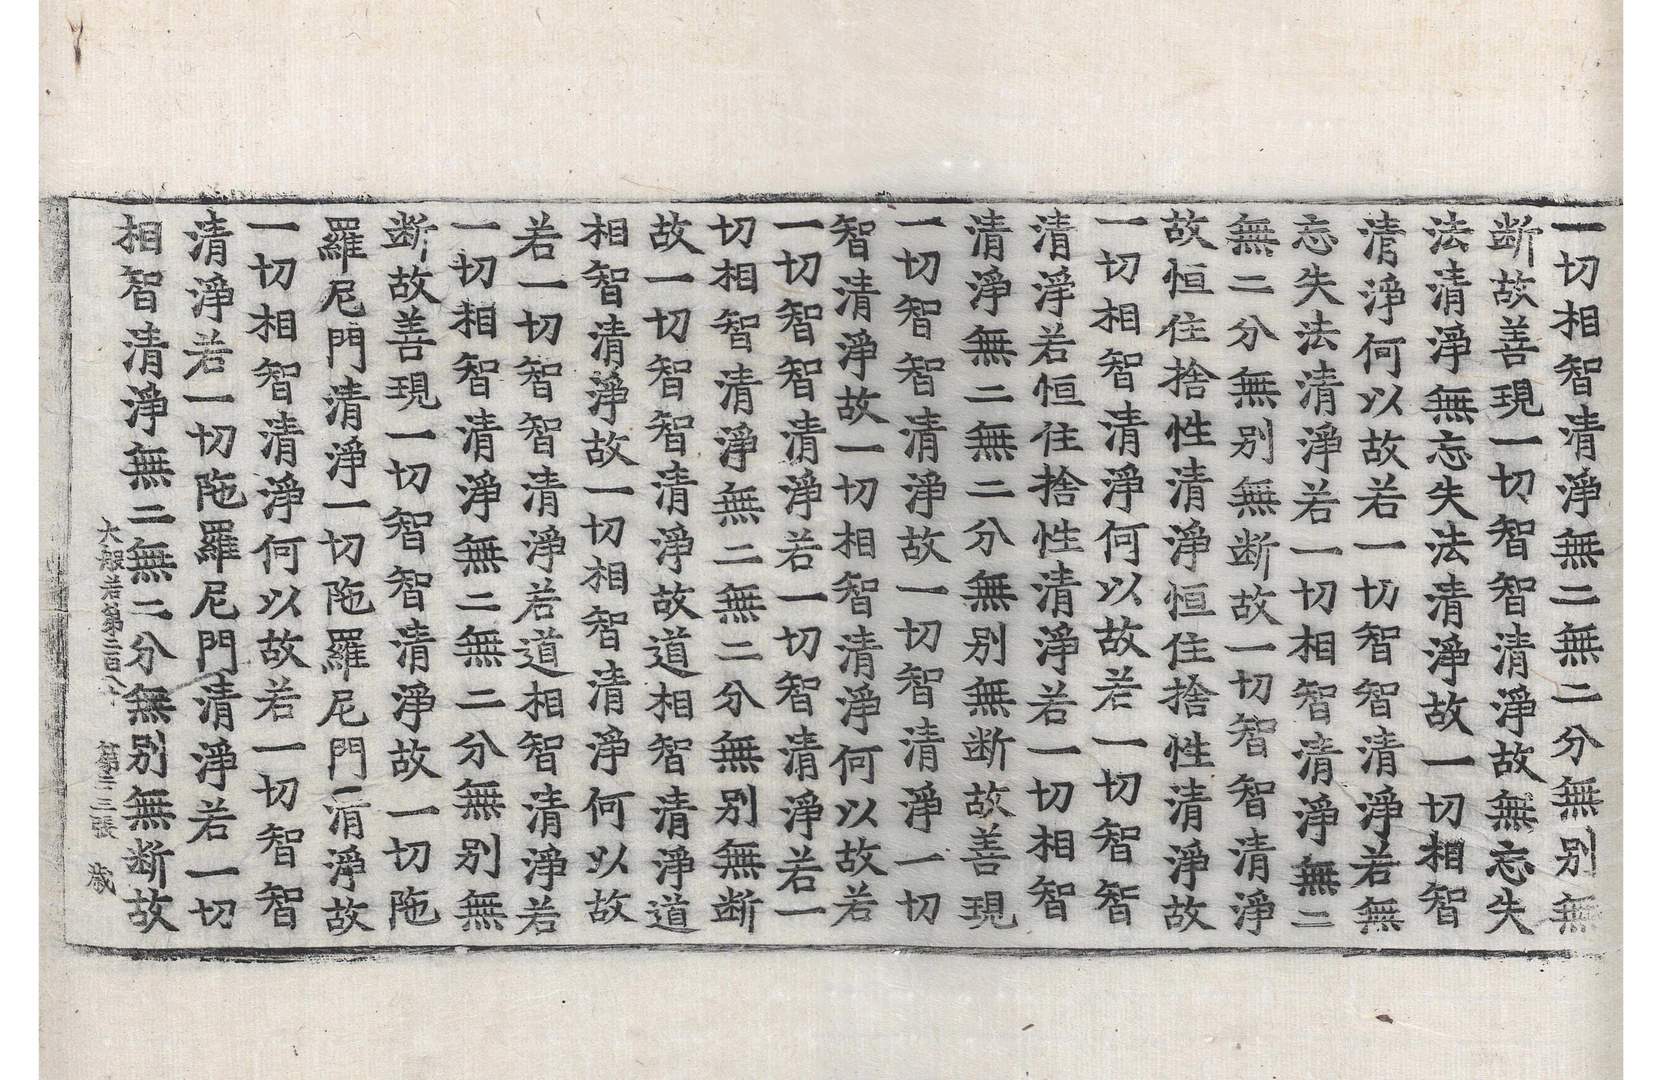 一切相智清淨無二無二分無別無
断故善現一切智智清淨故無忘失
法清淨無忘失法清淨故一切相智
清淨何以故若一切智智清淨若無
忘失法清淨若一切相智清淨無二
無二分無別無断故一切智智清淨
故恒住捨性清淨恒住捨性清淨故
一切相智清淨何以故若一切智智
清淨若恒住捨性清淨若一切相智
清淨無二無二分無別無断故善現
一切智智清淨故一切智清淨一切
智清淨故一切相智清淨何以故若
一切智智清淨若一切智清淨若一
切相智清淨無二無二分無別無断
故一切智智清淨故道相智清淨道
相智清淨故一切相智清淨何以故
若一切智智清淨若道相智清淨若
一切相智清淨無二無二分無別無
断故善現一切智智清淨故一切陁
羅尼門清淨一切陁羅尼門清淨故
一切相智清淨何以故若一切智智
清淨若一切陁羅尼門清淨若一切
相智清淨無二無二分無別無断故
大般若第 第 張